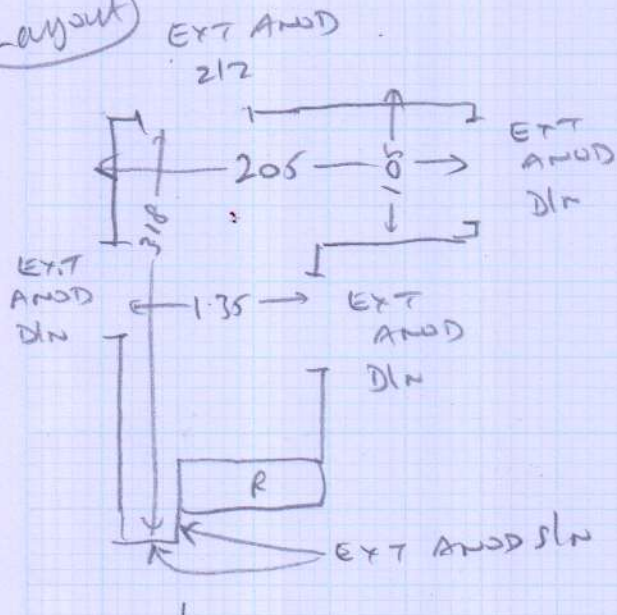 Layout
EXT ANOD
212
EXT
ANOD
D/N
206
105
318
EXT
ANOD
D/N
1.35
EXT
ANOD
D/N
R
EXT ANOD S/N